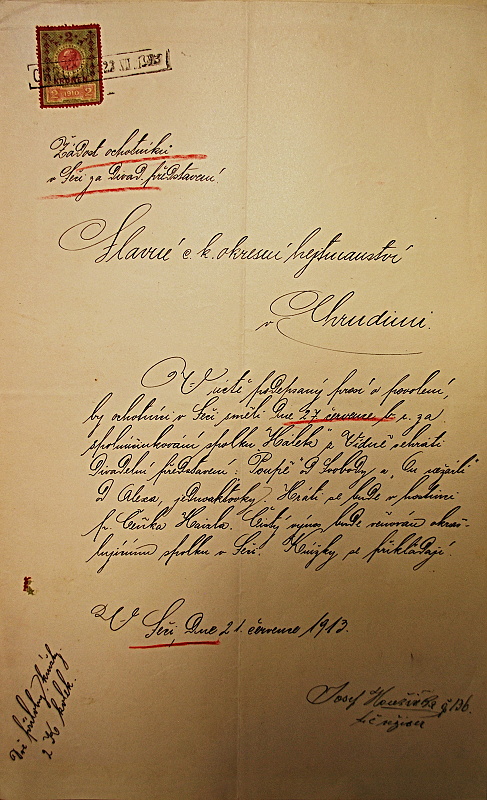 2
2 1910 2
23 XI. 1913
Žádost ochotníků
v Seči za divad. představení.
Slavné c. k. okresní hejtmanství
v Chrudimi.
V úctě podepsaný prosí o povolení,
by ochotníci v Seči směli dne 27. července t. r. za
spoluúčinkování spolku "Hálek" z Vídně sehráti
divadelní představení: "Poupě" od Svobody a
od Alexa, jednoaktovky. Hráti se bude v hostinci
p. Čeňka Haisla. Čistý výnos bude věnován okraš-
lujícímu spolku v Seči. Knížky se přikládají.
V Seči, dne 21. července 1913.
Dvě přílohy, knížky.
2 K kolek.
Josef č. 136